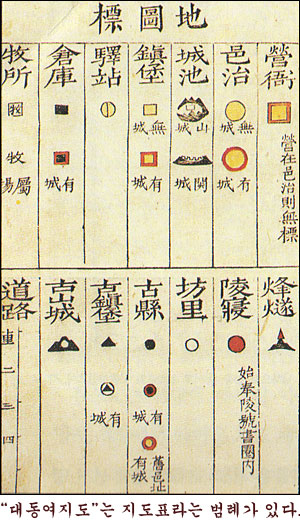 地圖標
營衙
營在邑治則無標
邑治
無城
有城
城池
山城
關城
鎭堡
無城
有城
驛站
倉庫
有城
牧所
牧
牧
屬場
烽燧
陵寢
始奉陵號書圈內
坊里
古縣
有城
舊邑址
有城
古鎭堡
有城
古山城
道路
二
三
四
"대동여지도"는 지도표라는 범례가 있다.